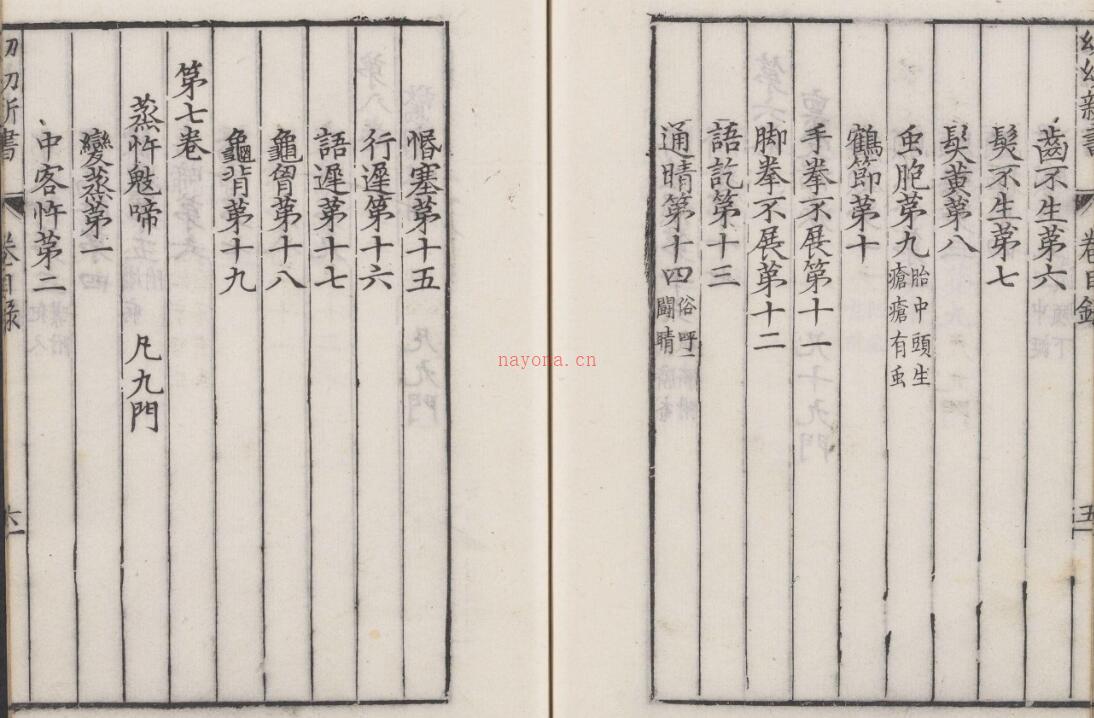 幼幼新書 卷目錄 五
齒不生第六
髮不生第七
髮黃第八
虫胞第九 胎中頭生瘡瘡有虫
鶴節第十
手拳不展第十一
脚拳不展第十二
語訖第十三
通睛第十四 俗呼鬪睛
惛塞第十五
行遲第十六
語遲第十七
龜胷第十八
龜背第十九
第七卷
蒸忤鬾啼 凡九門
變蒸第一
中客忤第二
幼幼新書 卷目錄 六
nayona.cn